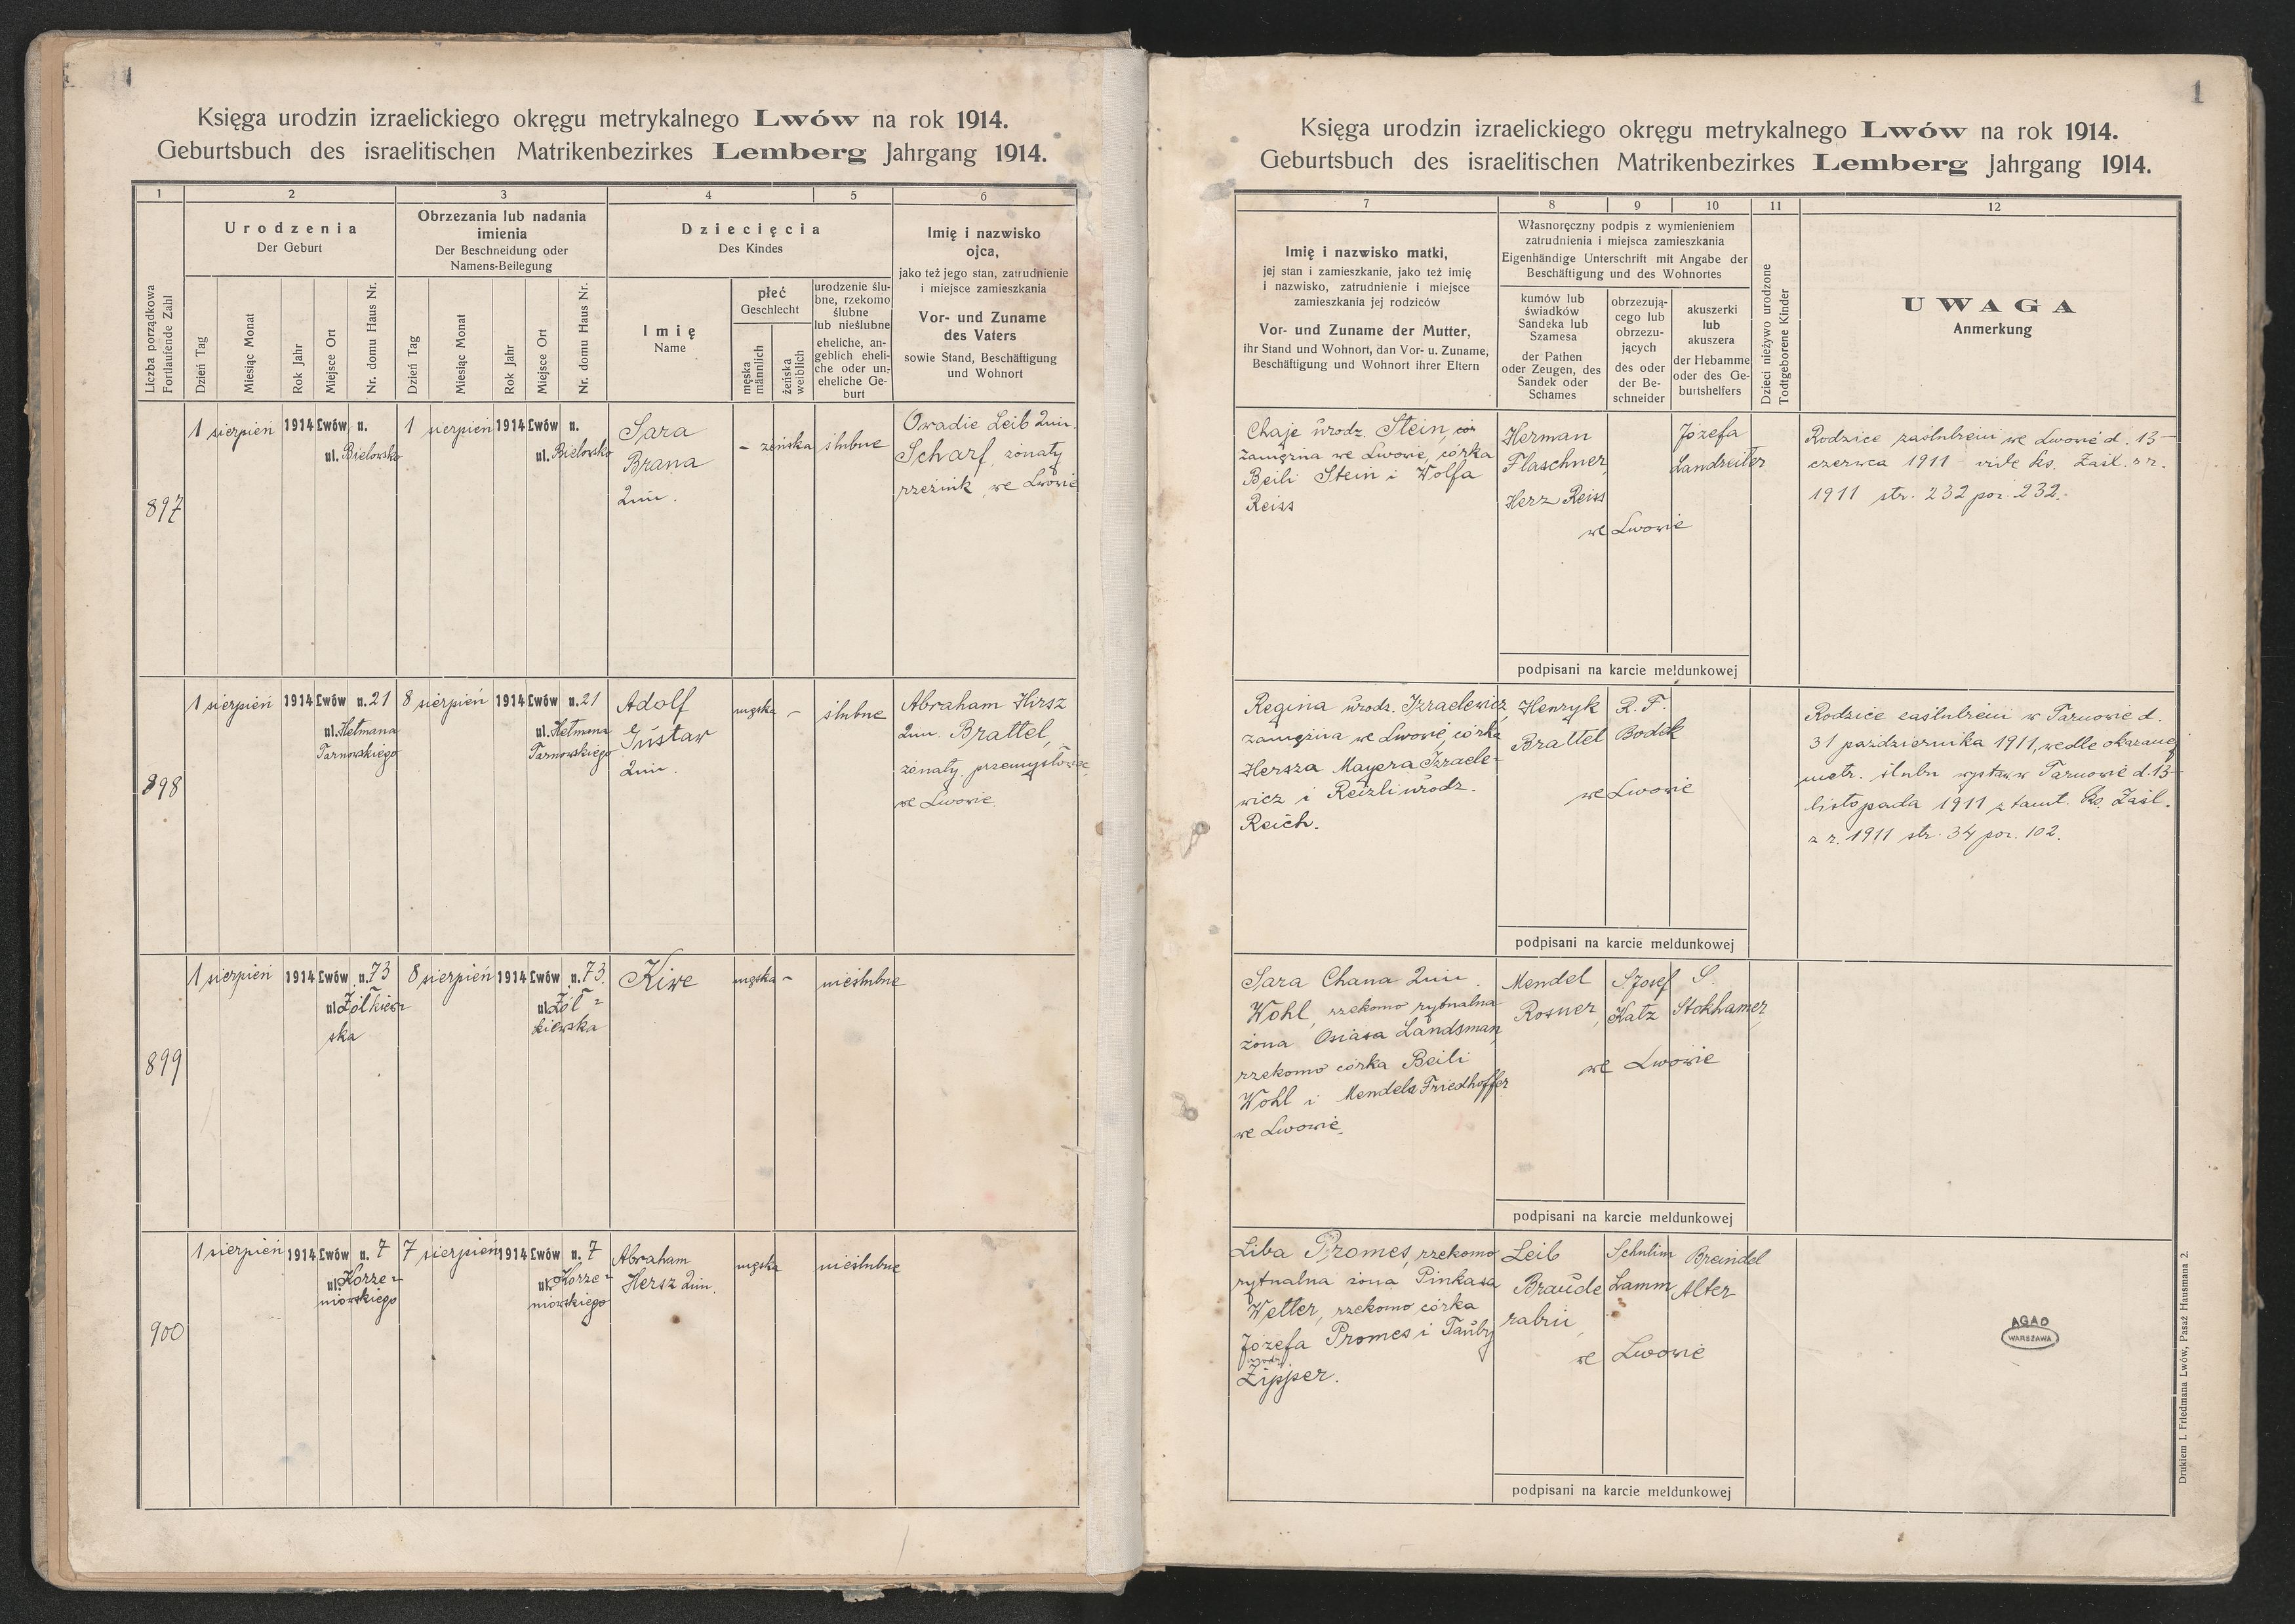 1
Księga urodzin izraelickiego okręgu metrykalnego Lwów na rok 1914.
Geburtsbuch des israelitischen Matrikenbezirkes Lemberg Jahrgang 1914.
1 2 3 4 5 6
Liczba porządkowa
Fortlaufende Zahl
Urodzenia
Der Geburt
Obrzezania lub nadania
imienia
Der Beschneidung oder
Namens-Beilegung
Dziecięcia
Des Kindes
Imię i nazwisko
ojca,
jako też jego stan, zatrudnienie
i miejsce zamieszkania
Vor- und Zuname
des Vaters
sowie Stand, Beschäftigung
und Wohnort
Dzień Tag
Miesiąc Monat
Rok Jahr
Miejsce Ort
Nr. domu Haus Nr.
Dzień Tag
Miesiąc Monat
Rok Jahr
Miejsce Ort
Nr. domu Haus Nr.
Imię
Name
płeć
Geschlecht
męska
männlich
żeńska
weiblich
urodzenie ślu-
bne, rzekomo
ślubne
lub nieślubne
eheliche, an-
geblich eheli-
che oder un-
eheliche Ge-
burt
897
1 sierpień 1914 Lwów n.
ul. Bielowsko
1 sierpień 1914 Lwów n.
ul. Bielowsko
Sara
Brana
2im.
- żeńska
ślubne
Owadie Leib 2im.
Scharf, żonaty
rzeźnik, we Lwowie
898
1 sierpień 1914 Lwów n. 21
ul. Hetmana
Tarnowskiego
8 sierpień 1914 Lwów n. 21
ul. Hetmana
Tarnowskiego
Adolf
Gustaw
2im.
męska -
ślubne
Abraham Hirsz
2im. Brattel,
żonaty. przemysłowiec,
we Lwowie.
899
1 sierpień 1914 Lwów n. 73
ul. Żółkiew-
ska
8 sierpień 1914 Lwów n. 73
ul. Żół-
kiewska
Kiwe
męska -
nieślubne
900
1 sierpień 1914 Lwów n. 7
ul. Korze-
niowskiego
7 sierpień 1914 Lwów n. 7
ul. Korze-
niowskiego
Abraham
Hersz 2im.
męska
nieślubne
1
Księga urodzin izraelickiego okręgu metrykalnego Lwów na rok 1914.
Geburtsbuch des israelitischen Matrikenbezirkes Lemberg Jahrgang 1914.
7 8 9 10 11 12
Imię i nazwisko matki,
jej stan i zamieszkanie, jako też imię
i nazwisko, zatrudnienie i miejsce
zamieszkania jej rodziców
Vor- und Zuname der Mutter,
ihr Stand und Wohnort, dan Vor- u. Zuname,
Beschäftigung und Wohnort ihrer Eltern
Własnoręczny podpis z wymienieniem
zatrudnienia i miejsca zamieszkania
Eigenhändige Unterschrift mit Angabe der
Beschäftigung und des Wohnortes
kumów lub
świadków
Sandeka lub
Szamesa
der Pathen
oder Zeugen, des
Sandek oder
Schames
obrzezują-
cego lub
obrzezu-
jących
des oder
der Be-
schneider
akuszerki
lub
akuszera
der Hebamme
oder des Ge-
burtshelfers
Dzieci nieżywo urodzone
Todtgeborene Kinder
UWAGA
Anmerkung
Chaje urodz. Stein, cór
zamężna we Lwowie, córka
Beili Stein i Wolfa
Reiss
Herman
Flaschner,
Herz Reiss
Józefa
Landreiter
we Lwowie
Rodzice zaślubieni we Lwowie d. 13
czerwca 1911 - vide ks. Zaśl. z r.
1911 str. 232 poz. 232.
podpisani na karcie meldunkowej
Regina urodz. Izraelewicz
zamężna we Lwowie, córka
Hersza Mayera Izraele-
wicz i Reizli urodz.
Reich.
Henryk
Brattel
R. F.
Bodek
we Lwowie
Rodzice zaślubieni w Tarnowie d.
31 października 1911, wedle okazanej
metr. ślubu wystaw w Tarnowie d. 13
listopada 1911 z tamt. ks. Zaśl.
z r. 1911 str. 34 poz. 102.
podpisani na karcie meldunkowej
Sara Chana 2im.
Wohl, rzekomo rytualna
żona Osiasa Landsman,
rzekomo córka Beili
Wohl i Mendela Friedhoffer
we Lwowie.
Mendel
Rosner,
Josef
Katz
S.
Stokhamer,
we Lwowie
podpisani na karcie meldunkowej
Liba Promes, rzekomo
rytualna żona Pinkasa
Wetter, rzekomo córka
Józefa Promes i Tauby
urodz.
Zipper.
Leib
Braude
rabin,
Schulim
Lamm,
Breindel
Alter
we Lwowie
podpisani na karcie meldunkowej
AGAD
WARSZAWA
Drukiem I. Friedmana Lwów, Pasaż Hausmana 2.